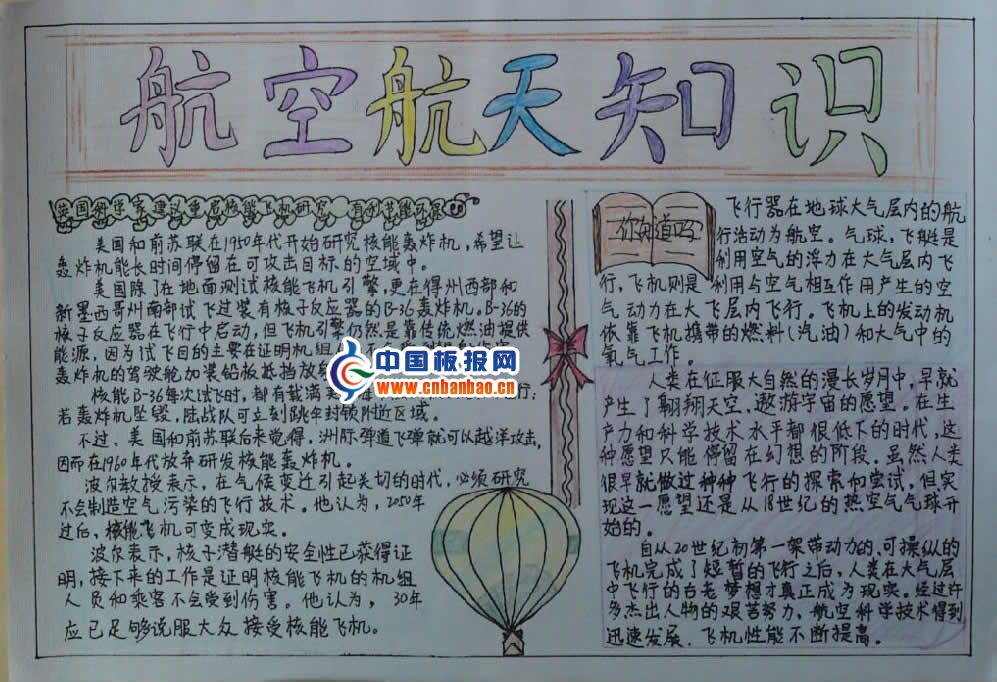 航空航天知识
美国科学家建议重启核能飞机研究 有利节能环保
美国和前苏联在1950年代开始研究核能轰炸机，希望让
轰炸机能长时间停留在可攻击目标的空域中。
美国除了在地面测试核能飞机引擎，更在得州西部和
新墨西哥州南部试飞过装有核子反应器的B-36轰炸机。B-36的
核子反应器在飞行中启动，但飞机引擎仍然是靠传统燃油提供
能源，因为试飞目的主要在证明机组
轰炸机的驾驶舱加装铅板抵挡放
核能B-36每次试飞时，都有载满 行；
若轰炸机坠毁，陆战队可立刻跳伞封锁附近区域。
不过、美国和前苏联后来觉得，洲际弹道飞弹就可以越洋攻击，
因而在1960年代放弃研发核能轰炸机。
波尔教授表示，在气候变迁引起关切的时代，必须研究
不会制造空气污染的飞行技术。他认为，2050年
过后，核能飞机可变成现实。
波尔表示，核子潜艇的安全性已获得证
明，接下来的工作是证明核能飞机的机组
人员和乘客不会受到伤害。他认为，30年
应已足够说服大众接受核能飞机。
你知道吗?
飞行器在地球大气层内的航
行活动为航空。气球，飞艇是
利用空气的浮力在大气层内飞
行，飞机则是利用与空气相互作用产生的空
气动力在大飞层内飞行。飞机上的发动机
依靠飞机携带的燃料（汽油）和大气中的
氧气工作。
人类在征服大自然的漫长岁月中，早就
产生了翱翔天空、遨游宇宙的愿望。在生
产力和科学技术水平都很低下的时代，这
种愿望只能停留在幻想的阶段。虽然人类
很早就做过种种飞行的探索和尝试，但实
现这一愿望还是从18世纪的热空气气球开
始的。
自从20世纪初第一架带动力的、可操纵的
飞机完成了短暂的飞行之后，人类在大气层
中飞行的古老梦想才真正成为现实。经过许
多杰出人物的艰苦努力，航空科学技术得到
迅速发展，飞机性能不断提高。
中国板报网
www.cnbanbao.cn